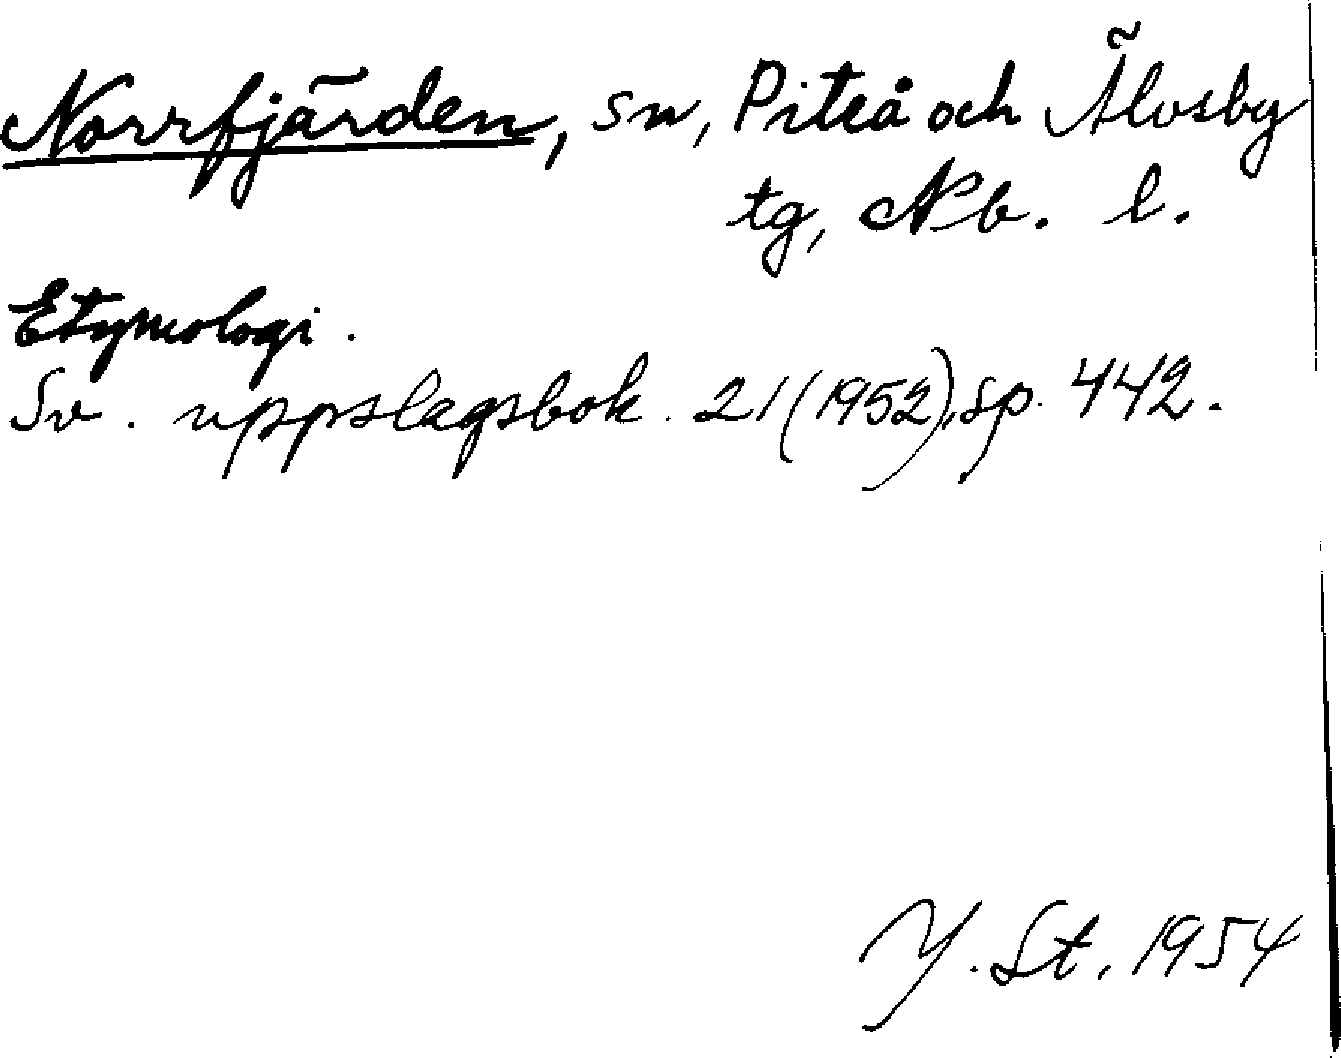 Norrfjärden, sn, Piteå och Älvsby
tg, Nb. l.
Etymologi.
Sv. uppslagsbok. 21 (1952), sp. 442.
Y. St. 1954